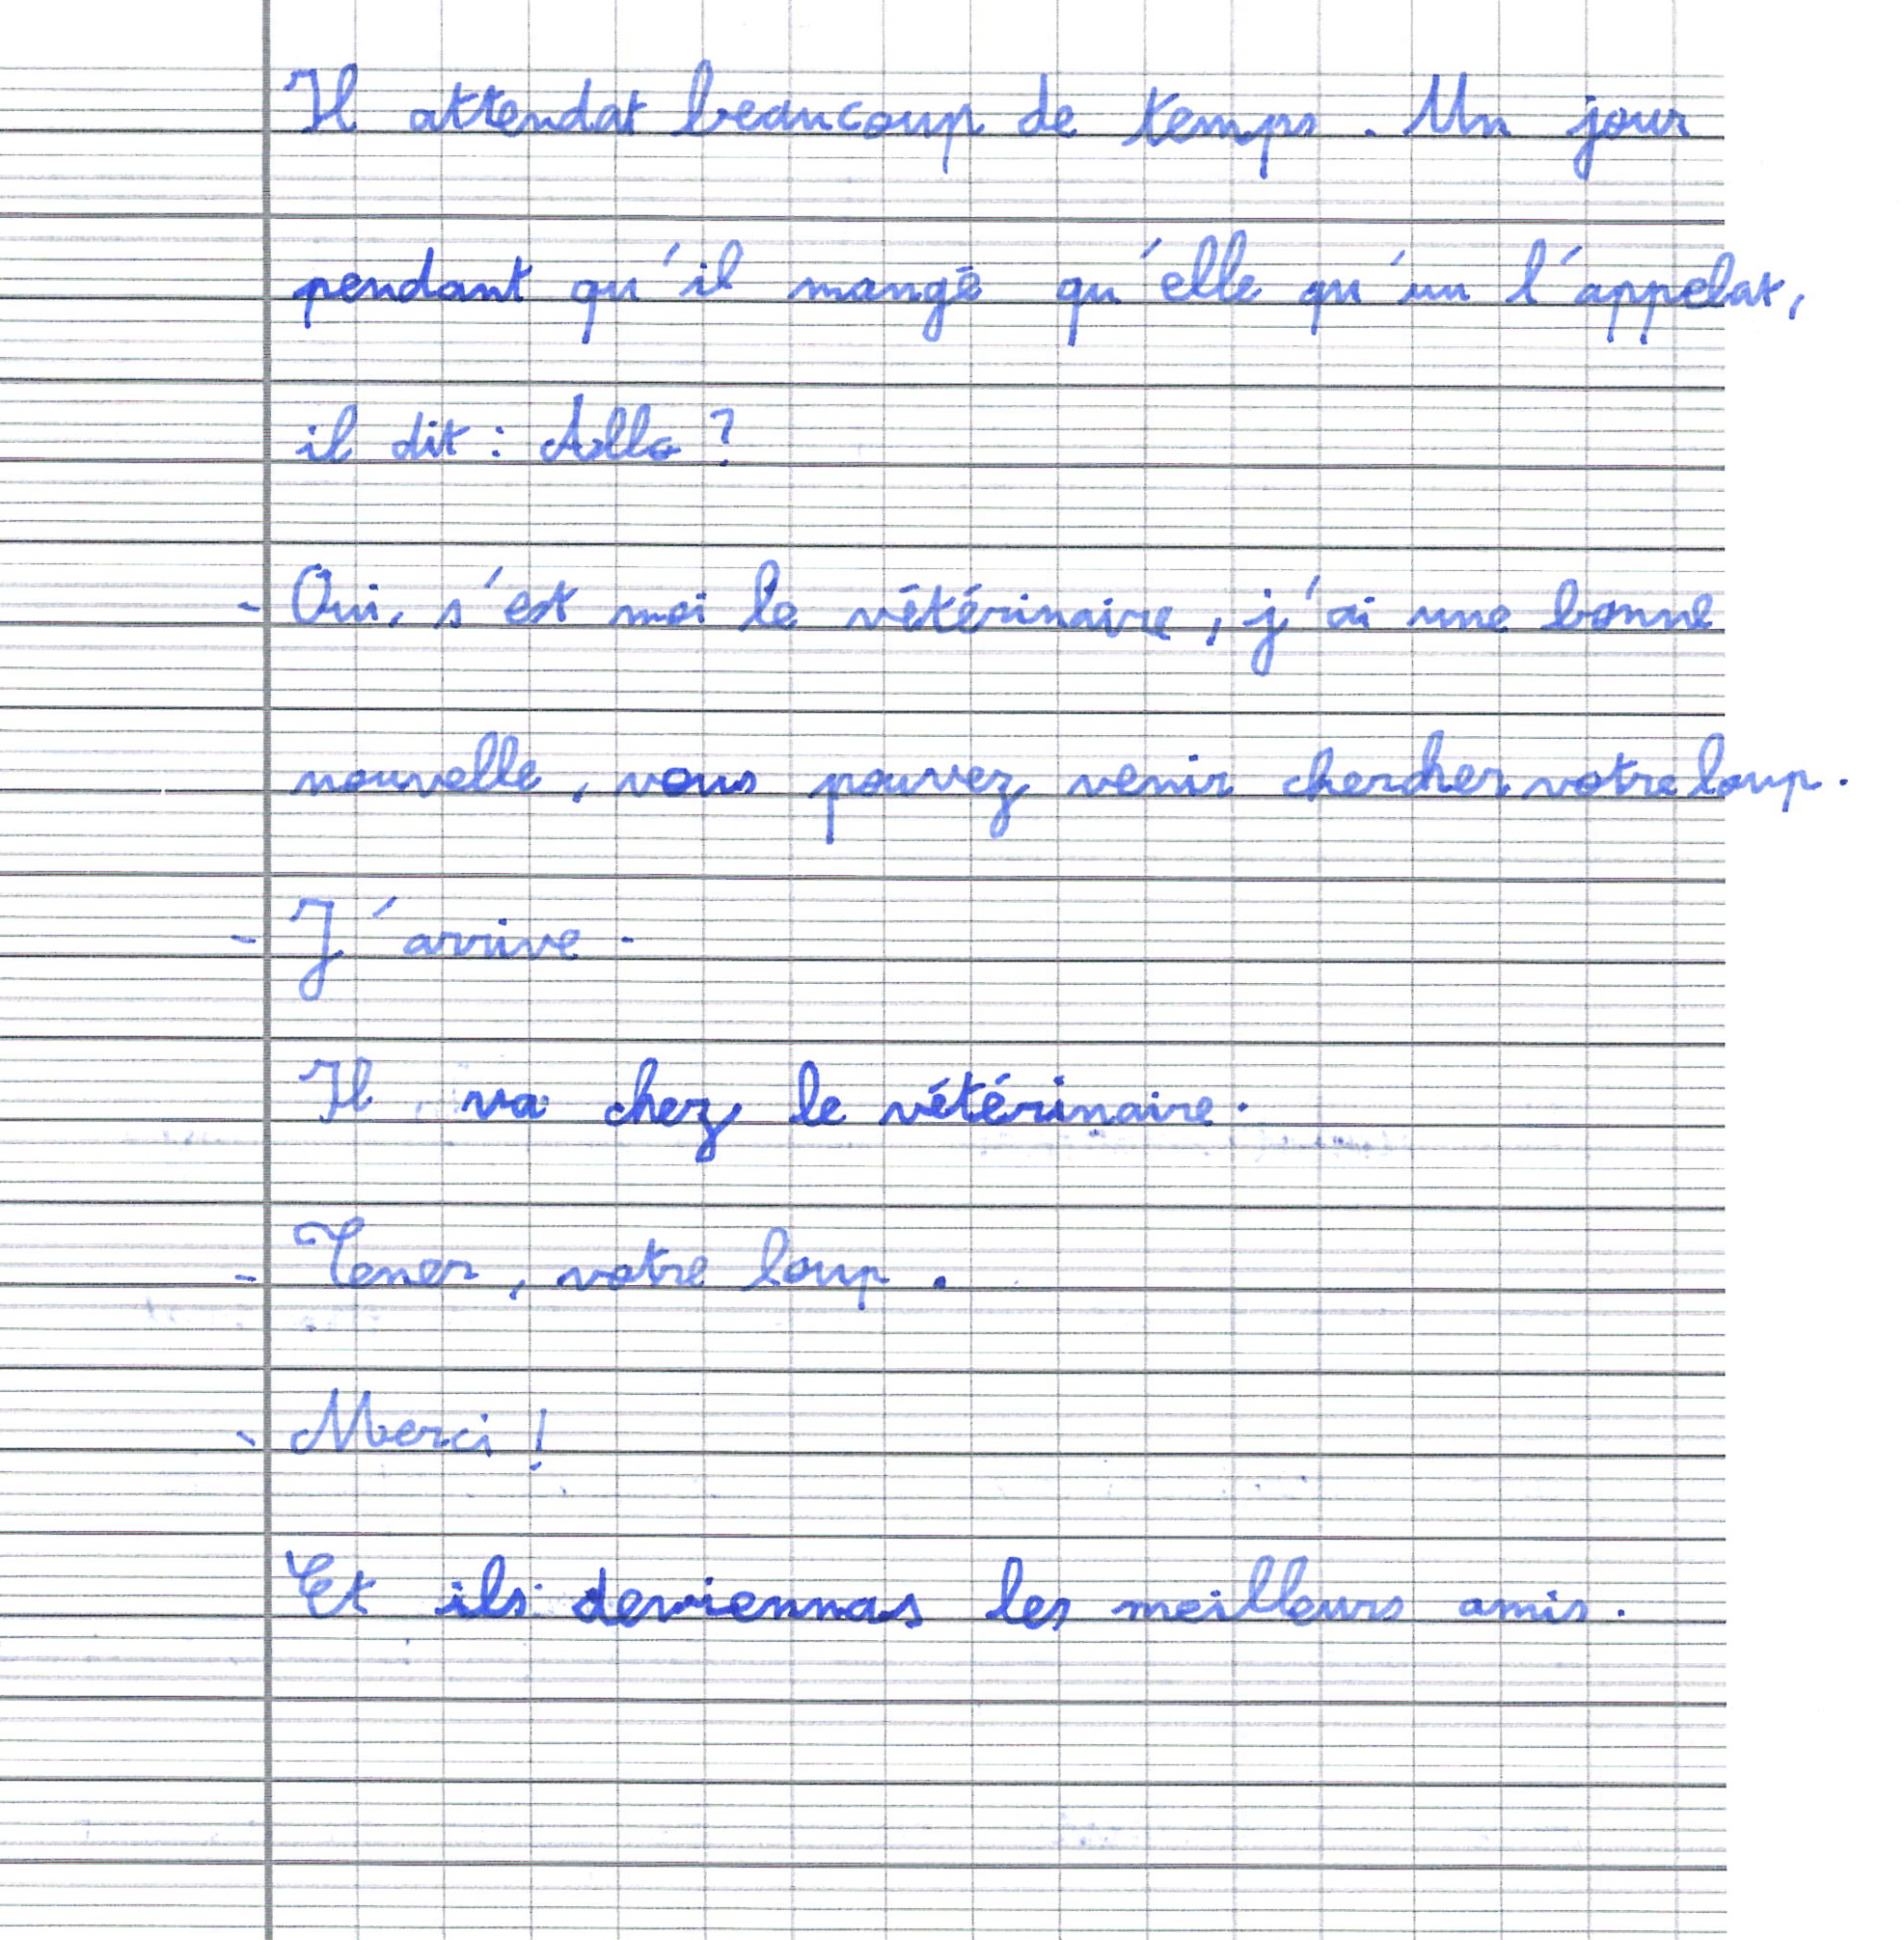 Il attendat beaucoup de temps. Un jour
pendant qu'il mangé qu'elle qu'un l'appelat,
il dit : Allo ?
- Oui, s'est moi le vétérinaire, j'ai une bonne
nouvelle, vous pouvez venir chercher votre loup.
- J'arrive.
Il va chez le vétérinaire.
- Tener, votre loup.
- Merci !
Et ils deviennas les meilleurs amis.